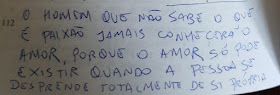 112 O HOMEM QUE NÃO SABE O QUE
É PAIXÃO JAMAIS CONHECERÁ O
AMOR, PORQUE O AMOR SÓ PODE
EXISTIR QUANDO A PESSOA SE
DESPRENDE TOTALMENTE DE SI PRÓPRIA